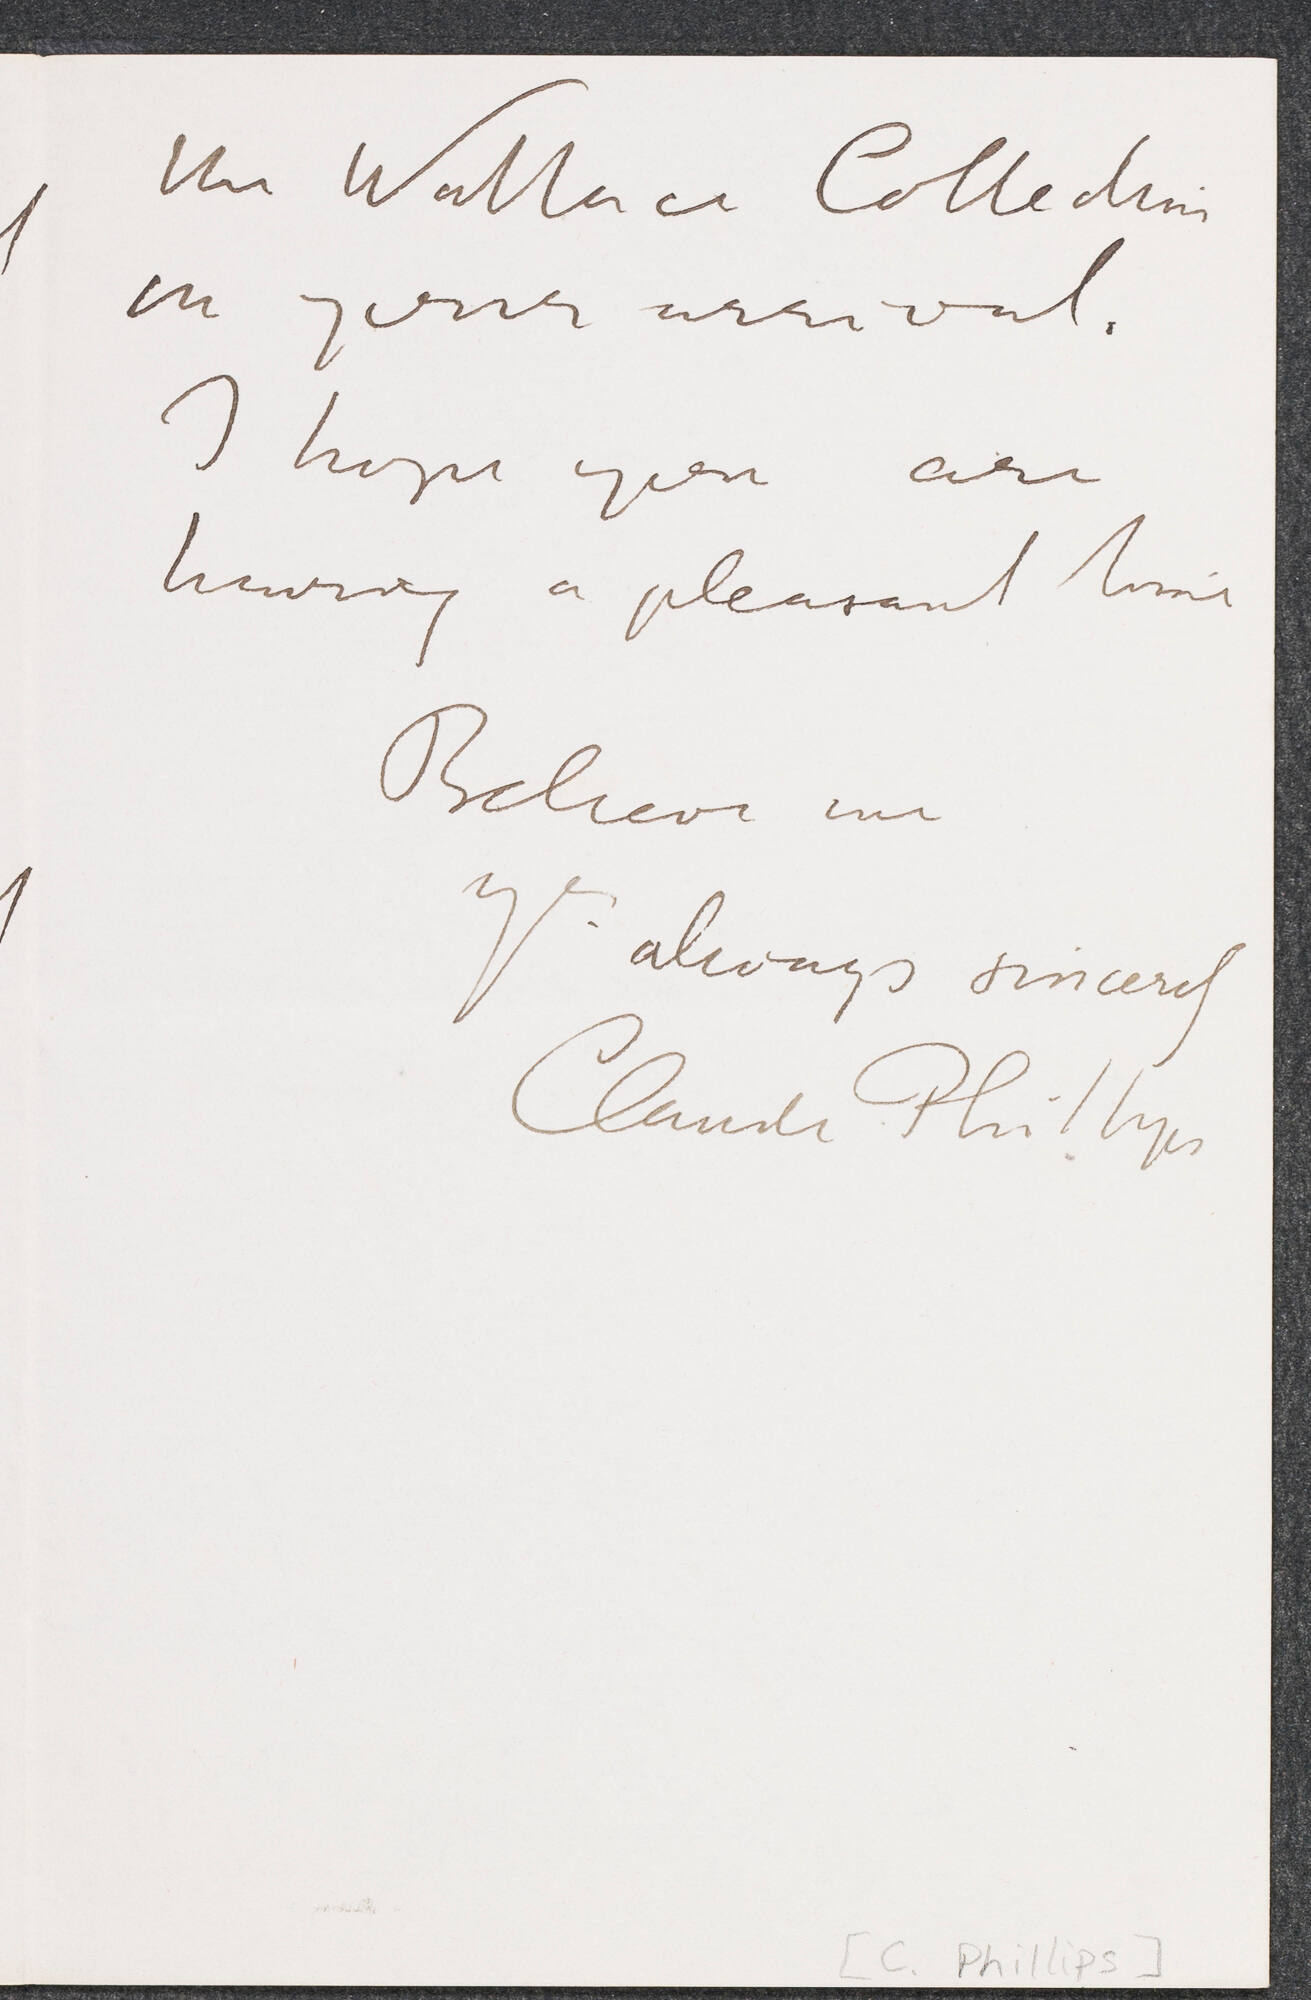 the Wallace Collection
on your arrival.
I hope you are
having a pleasant time
Believe me
yrs. always sincerely
Claude Phillips
[C. Phillips]